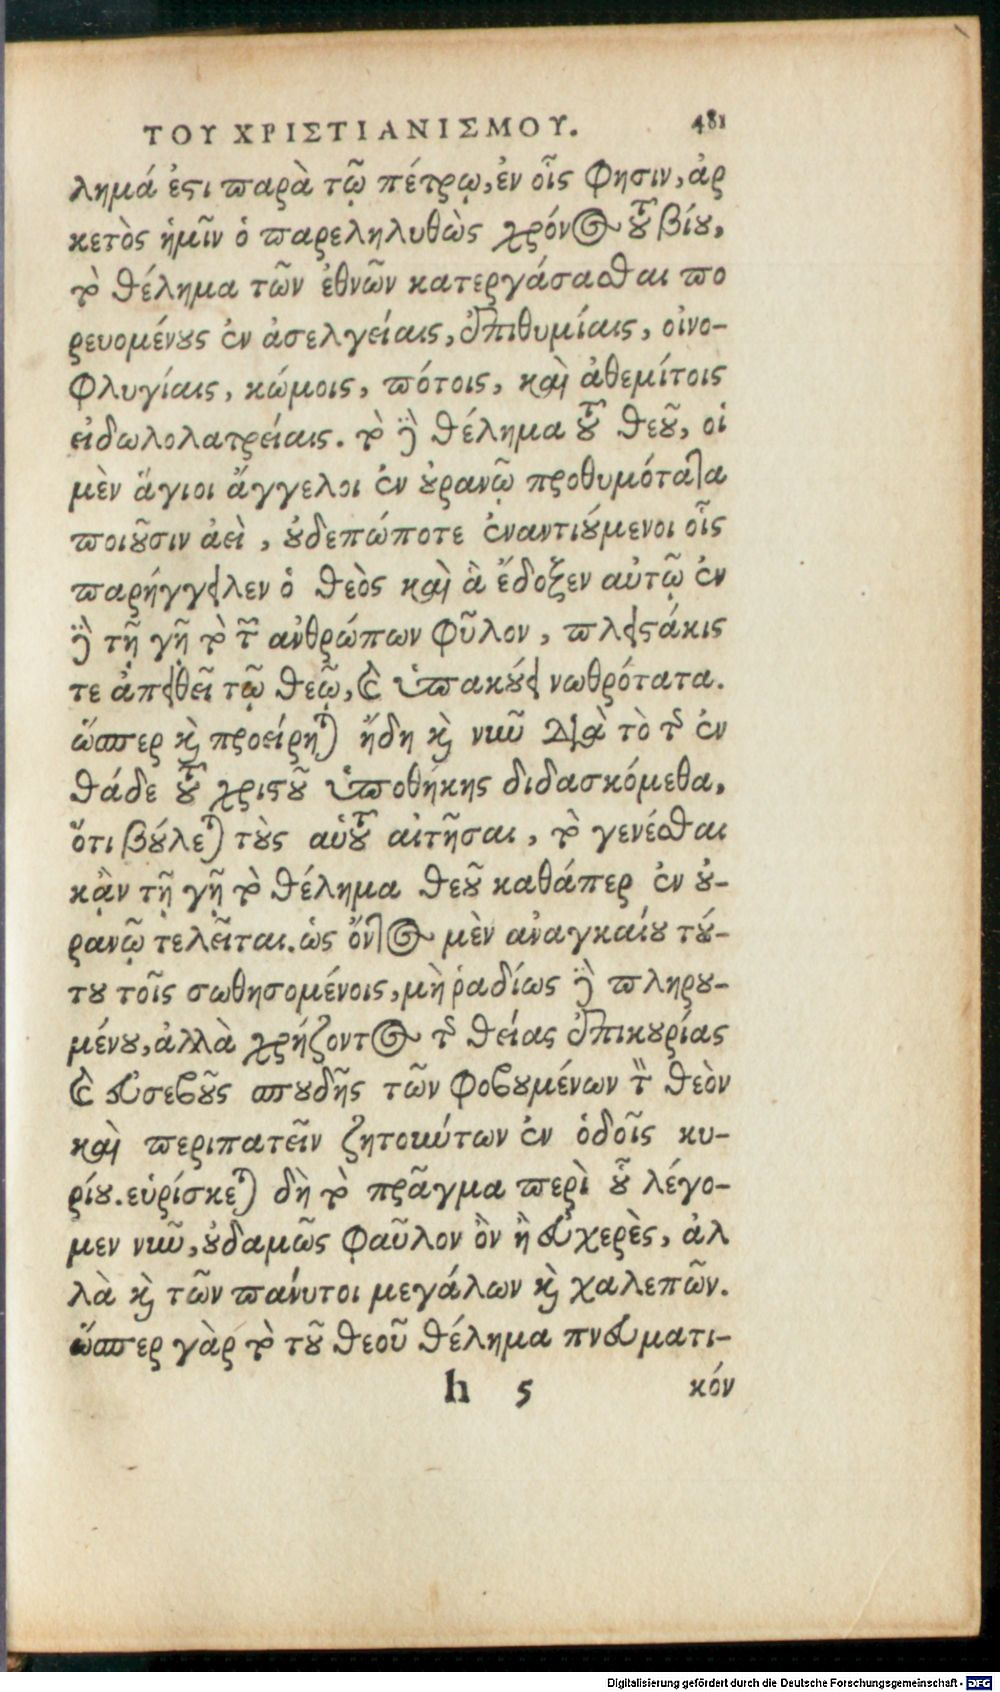 ΤΟΥ ΧΡΙΣΤΙΑΝΙΣΜΟΥ. 481
λημά ἐστι παρὰ τῷ πέτρῳ, ἐν οἷς φησιν, ἀρ
κετὸς ἡμῖν ὁ παρεληλυθὼς χρόνος τοῦ βίου,
τὸ θέλημα τῶν ἐθνῶν κατεργάσασθαι πο
ρευομένους ἐν ἀσελγείαις, ἐπιθυμίαις, οἰνο-
φλυγίαις, κώμοις, πότοις, καὶ ἀθεμίτοις
εἰδωλολατρείαις. τὸ δὲ θέλημα τοῦ θεοῦ, οἱ
μὲν ἅγιοι ἄγγελοι ἐν οὐρανῷ προθυμότατα
ποιοῦσιν ἀεὶ, οὐδεπώποτε ἐναντιούμενοι οἷς
παρήγγειλεν ὁ θεὸς καὶ ἃ ἔδοξεν αὐτῷ ἐν
δὲ τῇ γῇ τὸ τῶν ἀνθρώπων φῦλον, πλειστάκις
τε ἀπειθεῖ τῷ θεῷ, καὶ ὑπακούει νωθρότατα.
ὥσπερ καὶ προείρηται ἤδη καὶ νῦν διὰ τὸ τῆς ἐν
θάδε τοῦ χριστοῦ ὑποθήκης διδασκόμεθα,
ὅτι βούλεται τοὺς αὑτοῦ αἰτῆσαι, τὸ γενέσθαι
κᾂν τῇ γῇ τὸ θέλημα θεοῦ καθάπερ ἐν οὐ-
ρανῷ τελεῖται. ὡς ὄντος μὲν ἀναγκαίου τού-
του τοῖς σωθησομένοις, μὴ ῥαδίως δὲ πληρου-
μένου, ἀλλὰ χρήζοντος τῆς θείας ἐπικουρίας
καὶ εὐσεβοῦς σπουδῆς τῶν φοβουμένων τὸν θεὸν
καὶ περιπατεῖν ζητούντων ἐν ὁδοῖς κυ-
ρίου. εὑρίσκεται δὴ τὸ πρᾶγμα περὶ οὗ λέγο-
μεν νῦν, οὐδαμῶς φαῦλον ὂν ἢ εὐχερὲς, ἀλ
λὰ καὶ τῶν πάνυτοι μεγάλων καὶ χαλεπῶν.
ὥσπερ γὰρ τὸ τοῦ θεοῦ θέλημα πνευματι-
h 5 κόν
Digitalisierung gefördert durch die Deutsche Forschungsgemeinschaft - DFG